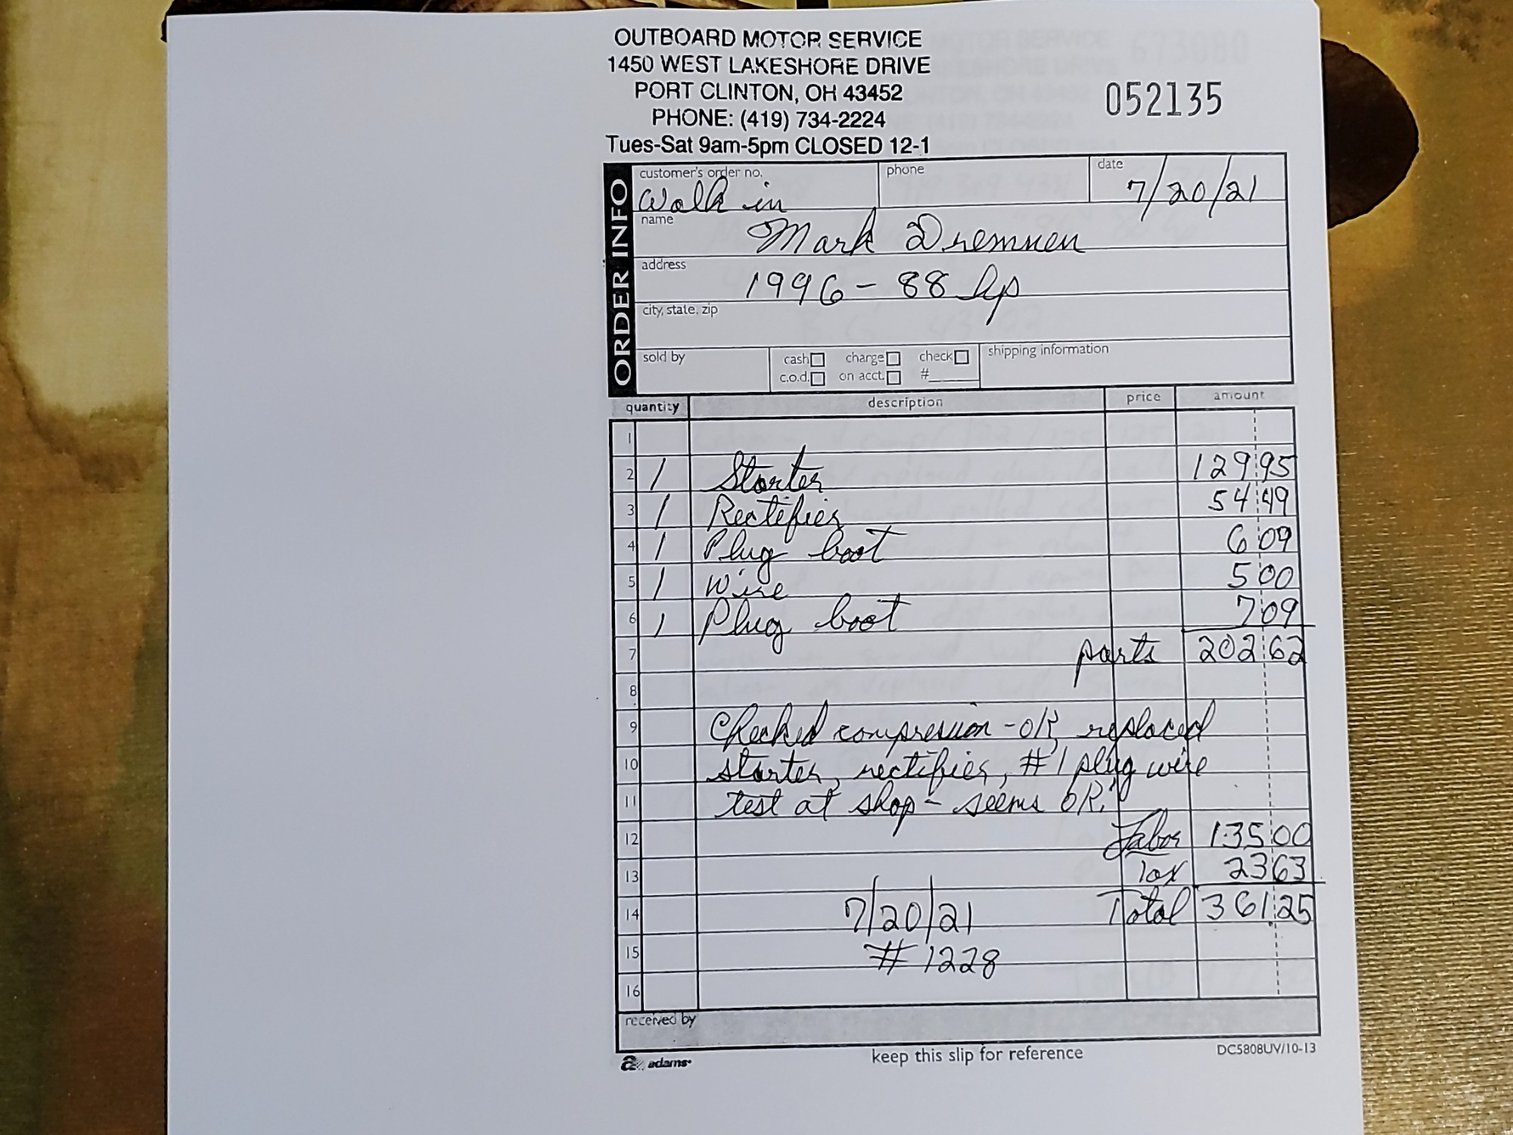 OUTBOARD MOTOR SERVICE
1450 WEST LAKESHORE DRIVE
PORT CLINTON, OH 43452
PHONE: (419) 734-2224
Tues-Sat 9am-5pm CLOSED 12-1
052135
ORDER INFO
customer's order no. phone date
Walk in 7/20/21
name
Mark Dremnen
address
1996 - 88 hp
city, state, zip
sold by cash charge check shipping information
c.o.d. on acct. #
quantity description price amount
1
2 1 Starter 129 95
3 1 Rectifier 54 49
4 1 Plug boot 6 09
5 1 Wire 5 00
6 1 Plug boot 7 09
7 parts 202 62
8
9 Checked compresion - OK, replaced
10 starter, rectifier, #1 plug wire
11 test at shop - seems OK.
12 Labor 135 00
13 Tax 23 63
14 7/20/21 Total 361.25
15 # 1228
16
received by
adams
keep this slip for reference
DC5808UV/10-13